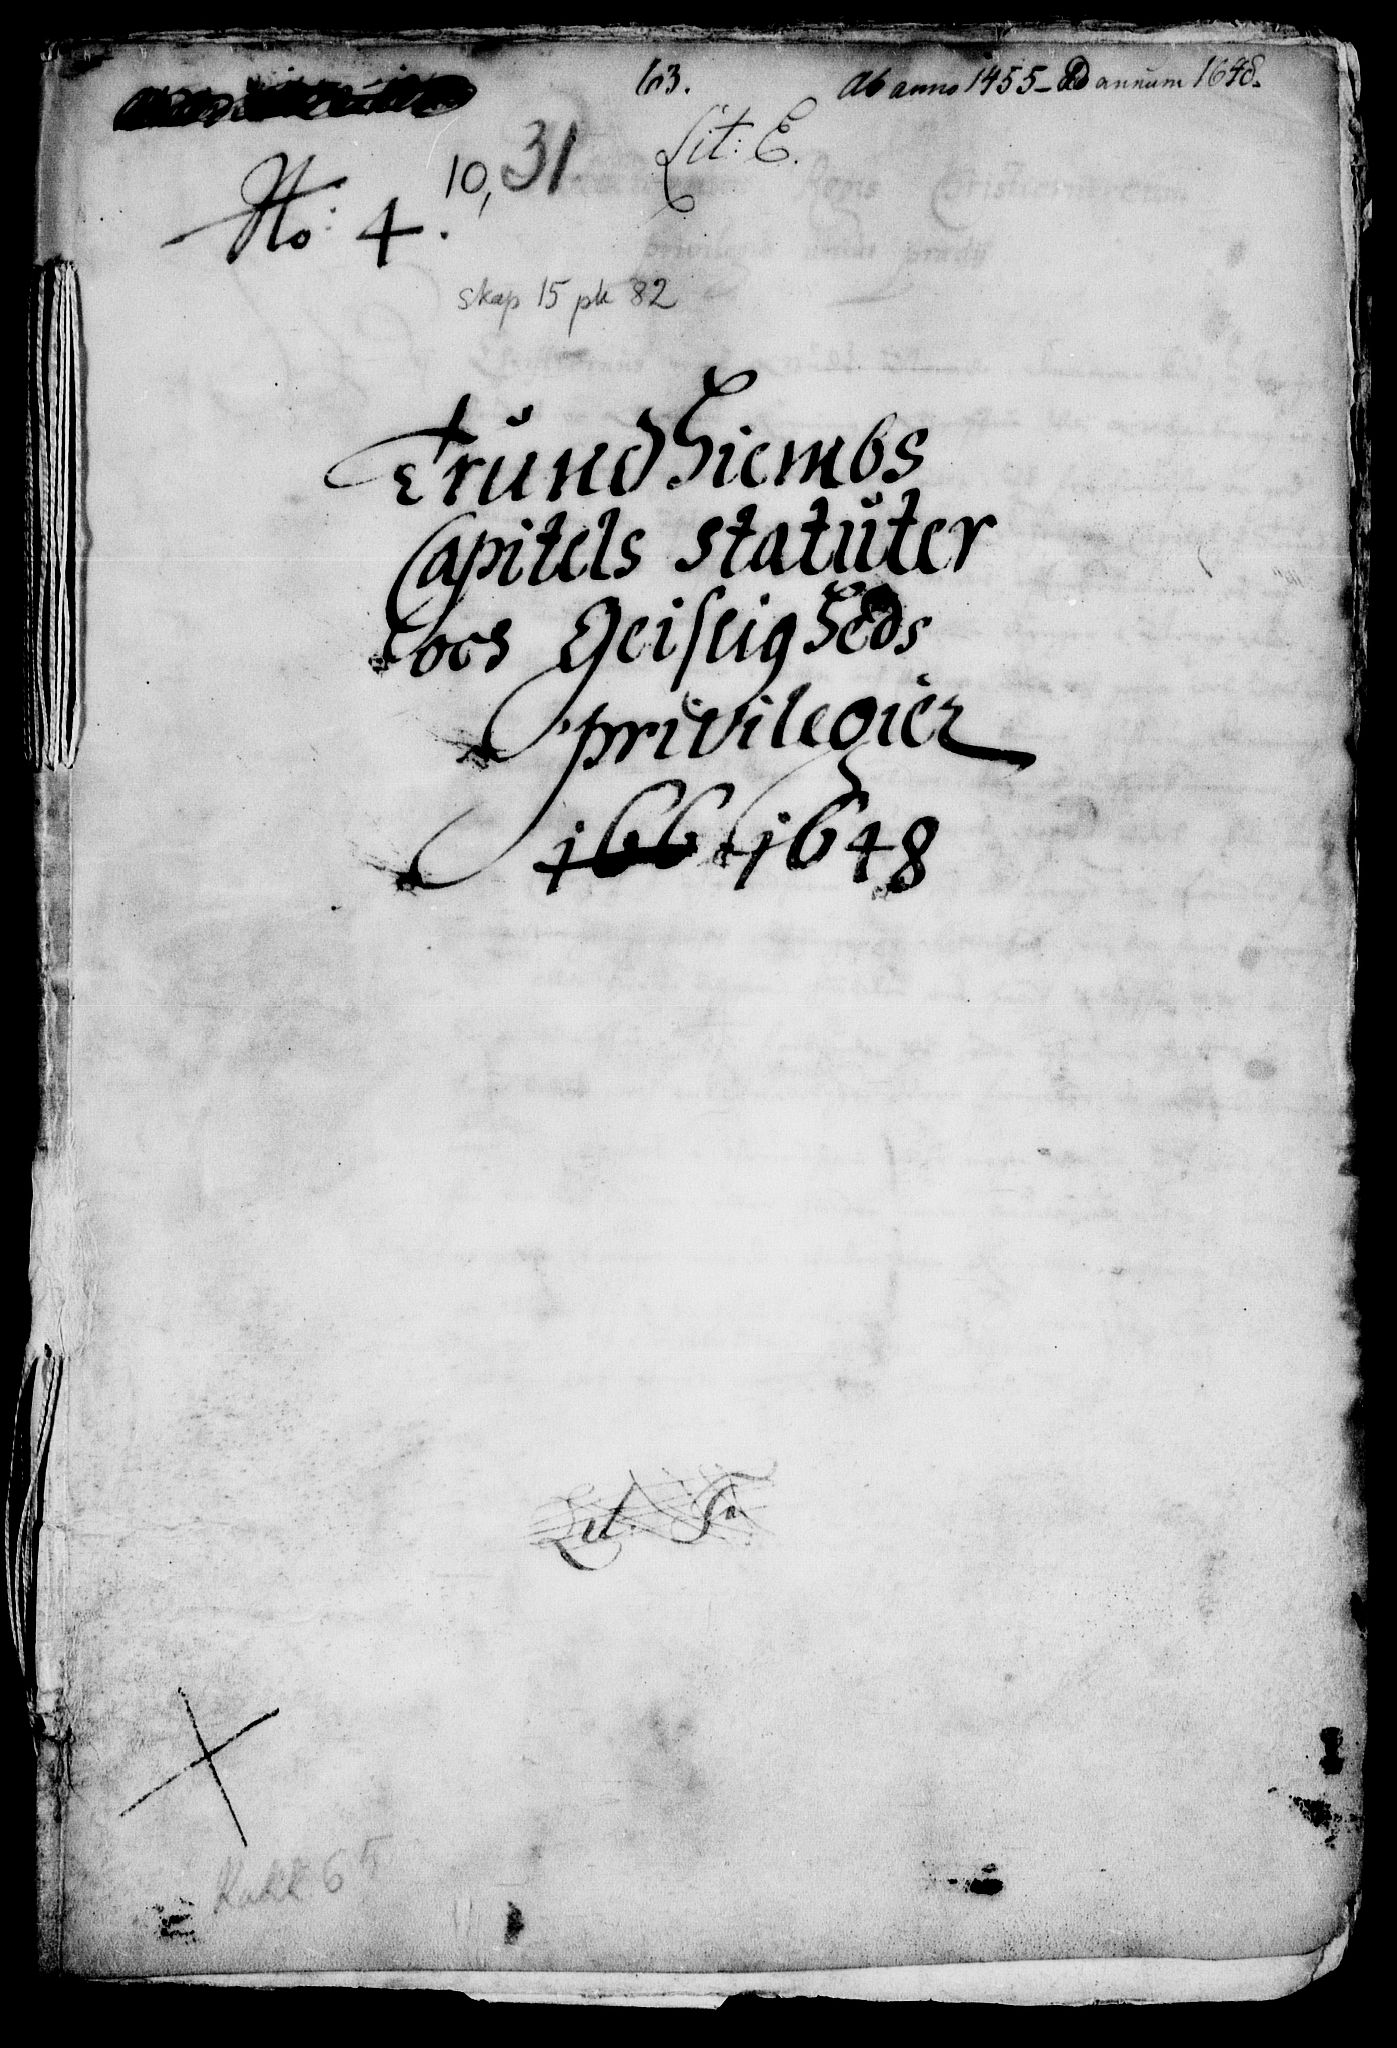 63.
Ab anno 1455 - Ad annum 1648.
Lit: E.
10, 31
No: 4.
skap 15 pk 82
Trundhiembs
Capitels statuter
och Geistligheds
privilegier
1648
Lit. F.